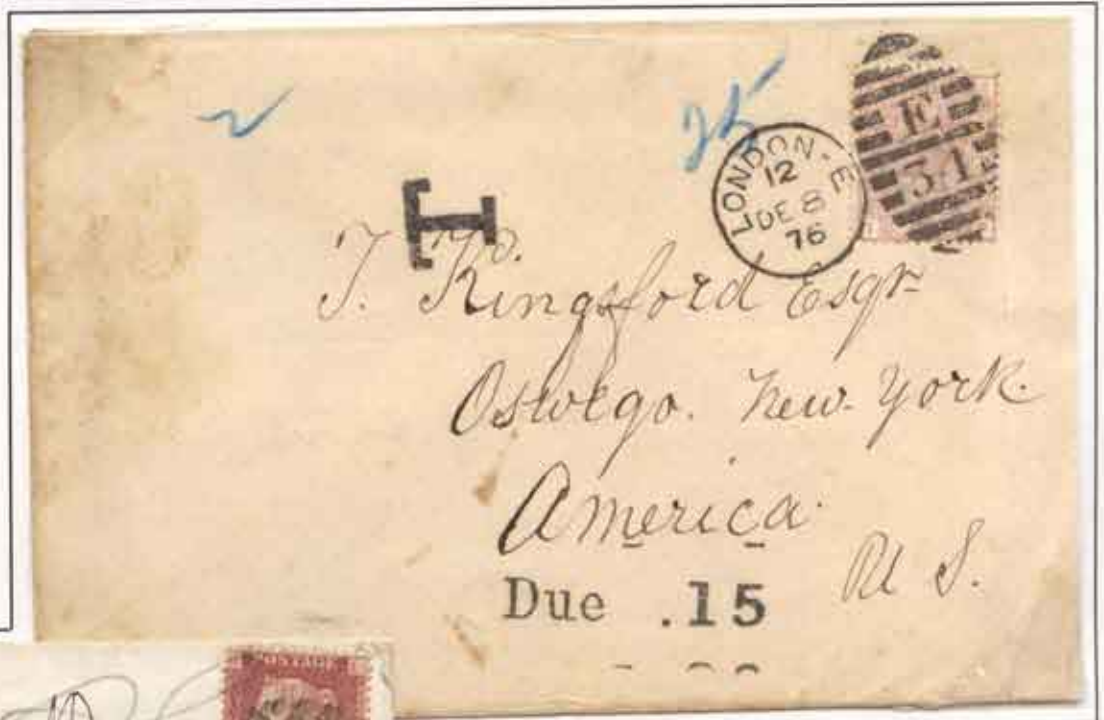 2
25
LONDON-E
12
DE 8
76
E
34
T
T. Kingsford Esqr
Oswego. New York.
America.
U S.
Due .15
POSTAGE